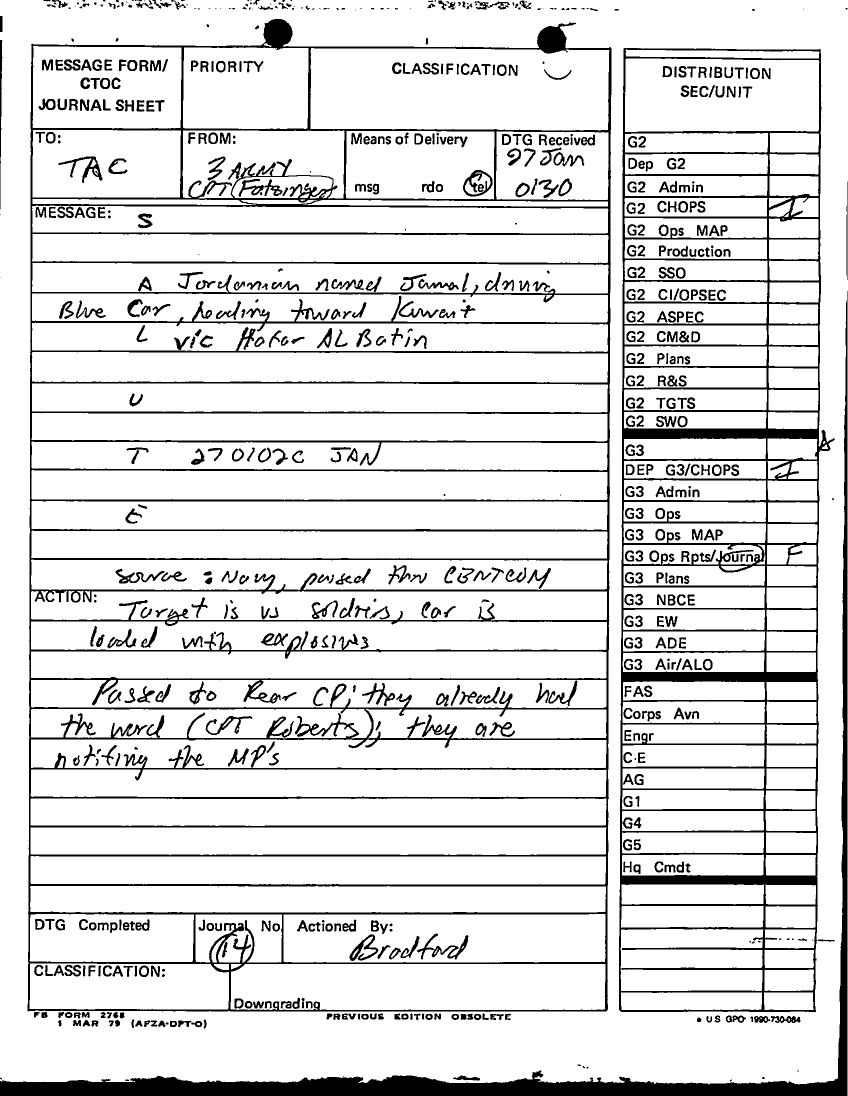 MESSAGE FORM/
CTOC
JOURNAL SHEET
PRIORITY
CLASSIFICATION
TO:
TAC
FROM:
3 ARMY
CPT
Means of Delivery
msg rdo tel
DTG Received
27 Jan
0130
MESSAGE:
S
A Jordanian named Jamal, driving
Blue Car, heading toward Kuwait
L vic Hafar AL Batin
U
T 270102C JAN
E
source: Navy, passed thru CENTCOM
ACTION:
Target is US soldiers, car is
loaded with explosives
Passed to Rear CP; they already had
the word (CPT Roberts); they are
notifing the MP's
DTG Completed
Journal No.
14
Actioned By:
Bradford
CLASSIFICATION:
Downgrading
FB FORM 2768
1 MAR 79 (AFZA-DPT-O)
PREVIOUS EDITION OBSOLETE
DISTRIBUTION
SEC/UNIT
G2
Dep G2
G2 Admin
G2 CHOPS I
G2 Ops MAP
G2 Production
G2 SSO
G2 CI/OPSEC
G2 ASPEC
G2 CM&D
G2 Plans
G2 R&S
G2 TGTS
G2 SWO
G3
DEP G3/CHOPS I
G3 Admin
G3 Ops
G3 Ops MAP
G3 Ops Rpts/Journal F
G3 Plans
G3 NBCE
G3 EW
G3 ADE
G3 Air/ALO
FAS
Corps Avn
Engr
C-E
AG
G1
G4
G5
Hq Cmdt
★ U S GPO 1990-730-084